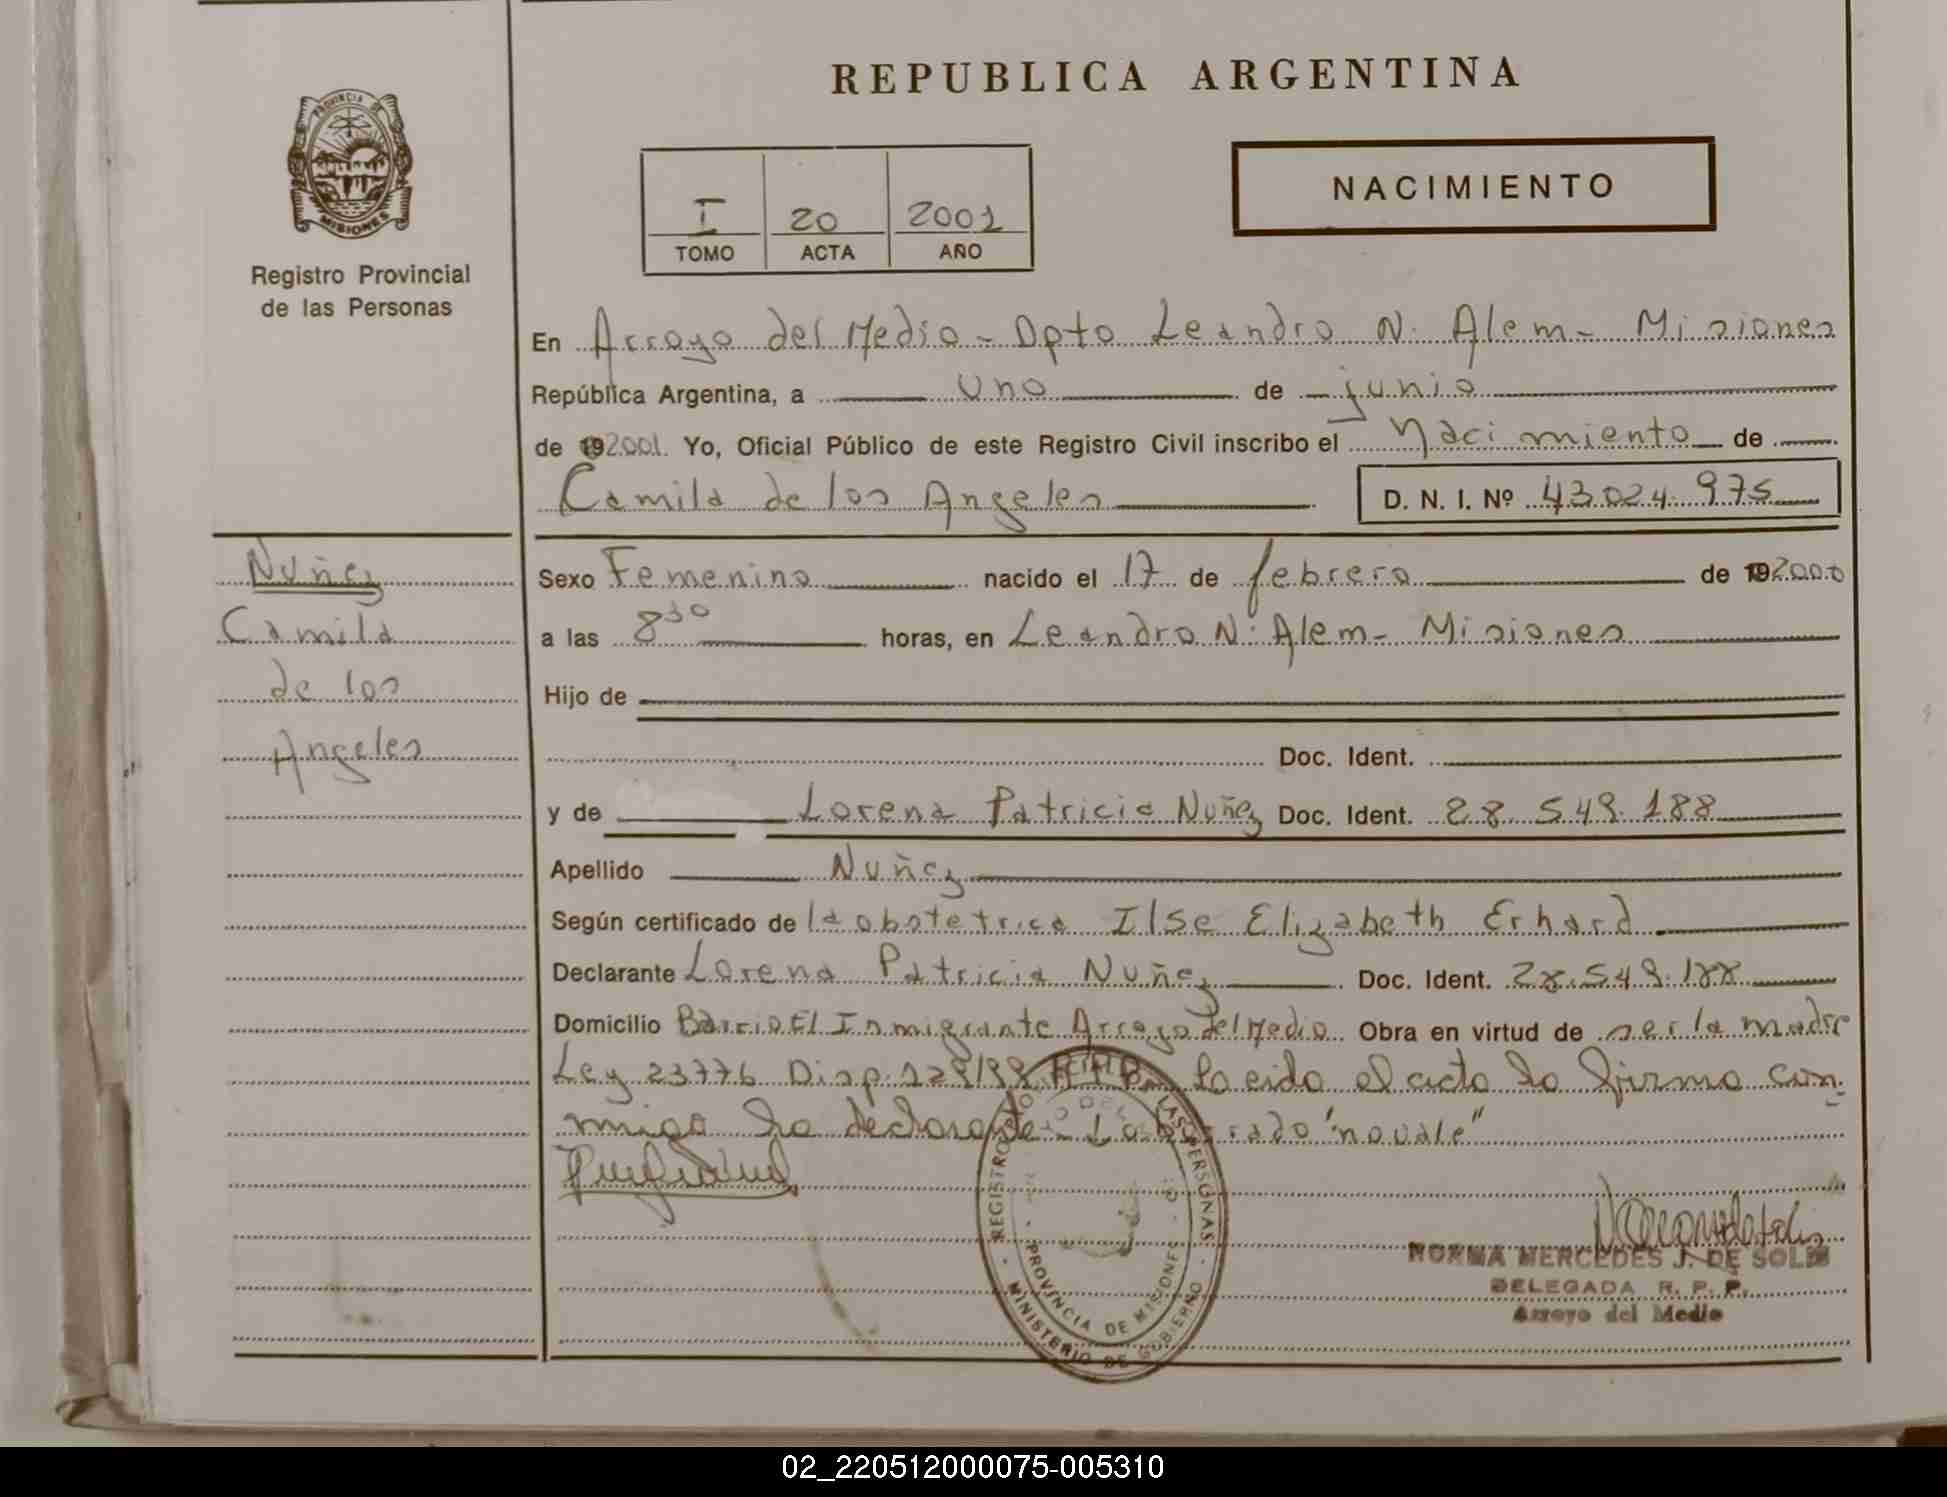 REPUBLICA ARGENTINA
PROVINCIA DE
MISIONES
Registro Provincial
de las Personas
I 20 2001
TOMO ACTA AÑO
NACIMIENTO
En Arroyo del Medio - Dpto Leandro N. Alem - Misiones
República Argentina, a uno de junio
de 192001. Yo, Oficial Público de este Registro Civil inscribo el Nacimiento de
Camila de los Angeles D. N. I. Nº 43.024.975
Nuñez
Camila
de los
Angeles
Sexo Femenino nacido el 17 de febrero de 192000
a las 8³⁰ horas, en Leandro N. Alem - Misiones
Hijo de
Doc. Ident.
y de Lorena Patricia Nuñez Doc. Ident. 28.549.188
Apellido Nuñez
Según certificado de la obstetrica Ilse Elizabeth Erhard
Declarante Lorena Patricia Nuñez Doc. Ident. 28.549.188
Domicilio Barrio El Inmigrante Arroyo del Medio Obra en virtud de ser la madre
Ley 23776 Disp. Leido el acta la firma con-
migo la declarante - Lo borrado "no vale"
REGISTRO DE LAS PERSONAS
PROVINCIA DE MISIONES
MINISTERIO DE GOBIERNO
NORMA MERCEDES J. DE SOLIS
DELEGADA R. P. P.
Arroyo del Medio
02_220512000075-005310